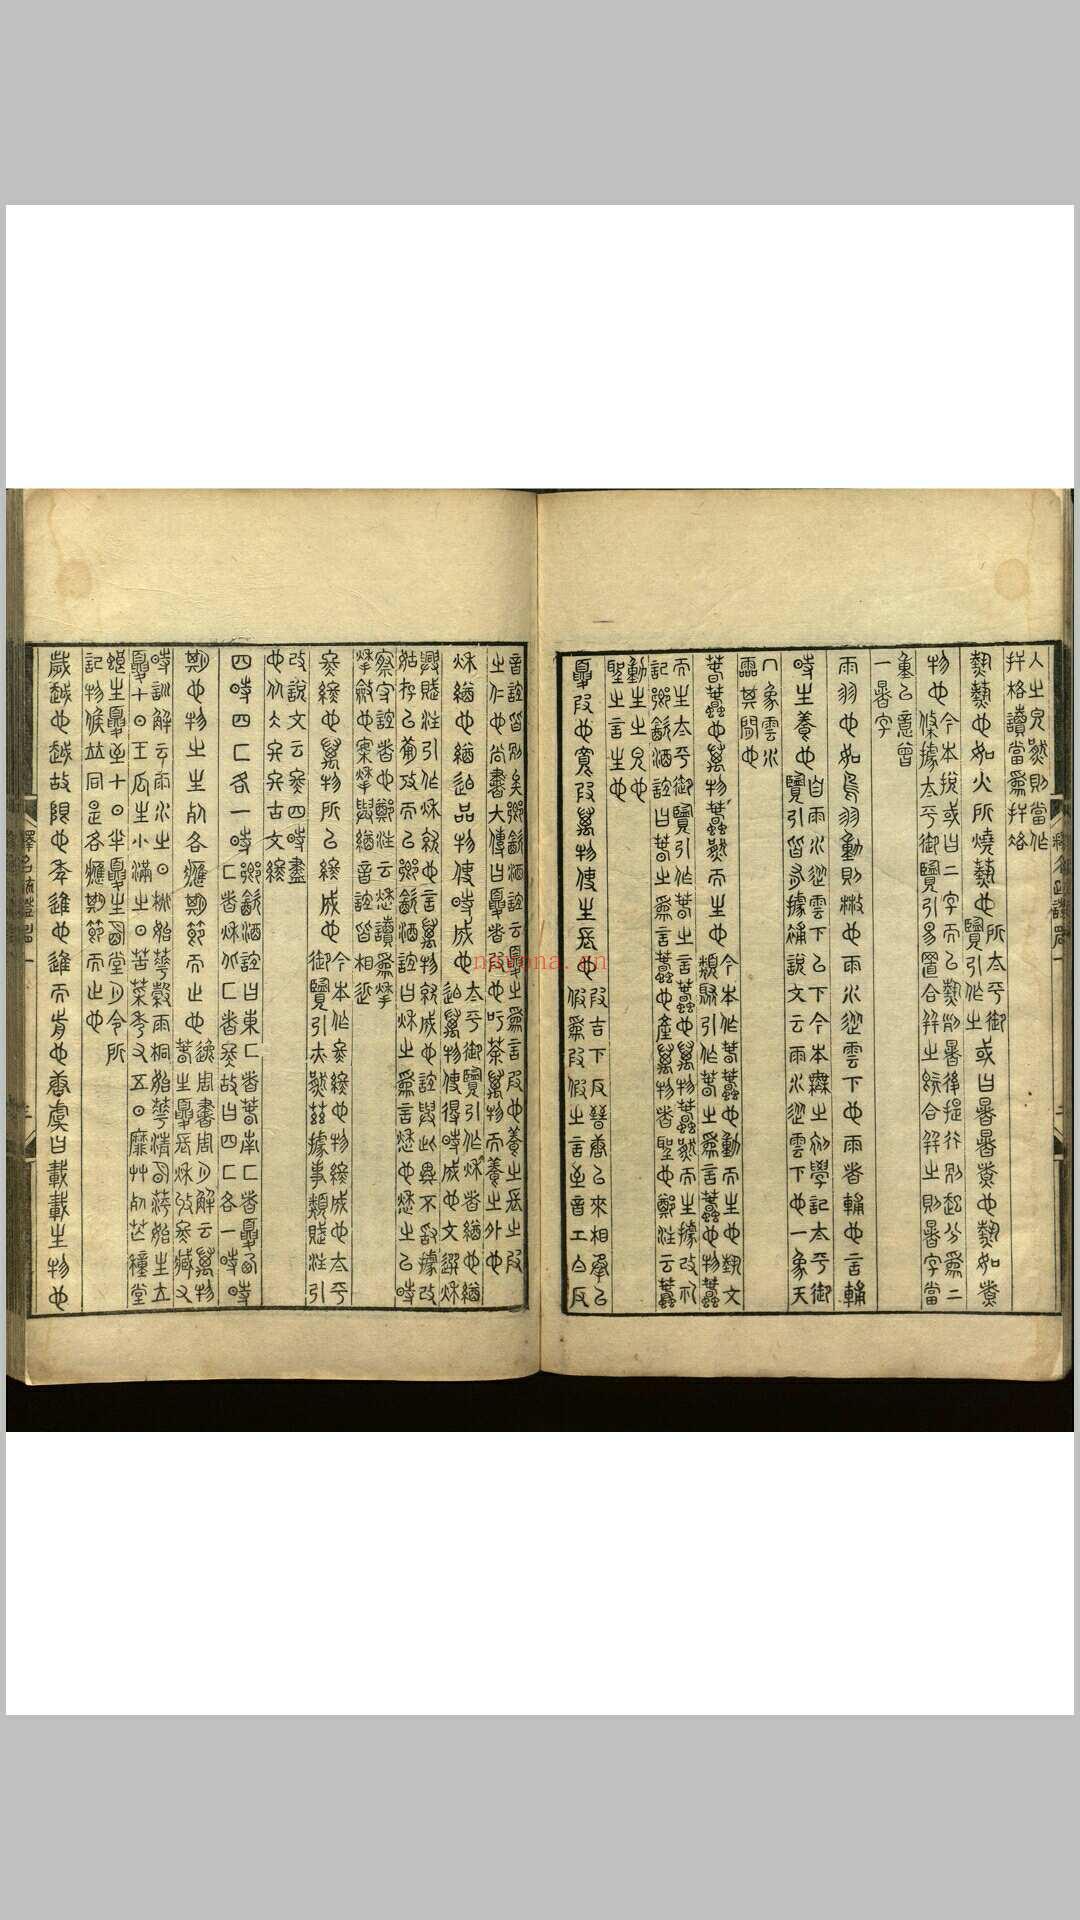 人之皃然則當作
并格讀當爲并峈
熱爇也如火所燒爇也
所太平御
覽引作之
或曰暑暑煑也熱如煑
物也
今本挩或曰二字而以熱別暑後提行別起分爲二
條據太平御覽引易置合併之統合併之則暑字當
重以意曾
一暑字
雨羽也如鳥羽動則散也雨水從雲下也雨者輔也言輔
時生養也
自雨水從雲下以下今本無之初學記太平御
覽引皆有據補說文云雨水從雲下也一象天
冂象雲水
霝其閒也
萅蠢也萬物蠢然而生也
今本作萅蠢也動而生也埶文
類聚引作萅之爲言蠢也物蠢
而生太平御覽引作萅之言蠢也萬物蠢然而生據改礼
記鄉飮酒誼曰萅之爲言蠢也產萬物者聖也鄭注云蠢
動生之皃也
聖之言生也
夏叚也寬叚萬物使生長也
叚吉下反晉唐以來相承以
假爲叚假之言至音工白反
音誼皆別矣鄉飮酒誼云夏之爲言叚也養之長之叚
之仁也尚書大傳曰夏者叚也吁荼萬物而養之外也
秋緧也緧迫品物使時成也
太平御覽引作秋者緧也緧
迫萬物使得時成也文選秋
興賦注引作秋就也言萬物就成也誼與此異不敢據改
姑存以葡攷而以鄉飮酒誼曰秋之爲言愁也愁之以時
察守誼者也鄭注云愁讀爲揫
揫斂也案揫與緧音誼皆相近
冬終也萬物所以終成也
今本作冬終也物終成也太平
御覽引夫然茲據事類賦注引
改說文云冬四時盡
也从仌夂夂古文終
四時四匚各一時
鄉飮酒誼曰東匚者萅南匚者夏西
匚者秋北匚者冬故曰四匚各一時
期也物之生死各應期節而止也
逸周書周月解云萬物
萅生夏長秋收冬臧又
時訓解云雨水之日桃始華穀雨桐始華淸明萍始生立
夏十日王瓜生小滿之日苦菜秀又五日靡艸死芒穜堂
螂生夏至十日半夏生
記物候竝同是各應期節而止也
歲越也越故限也年進也進而前也唐虞曰載載生物也
釋名疏證
nayona.cn